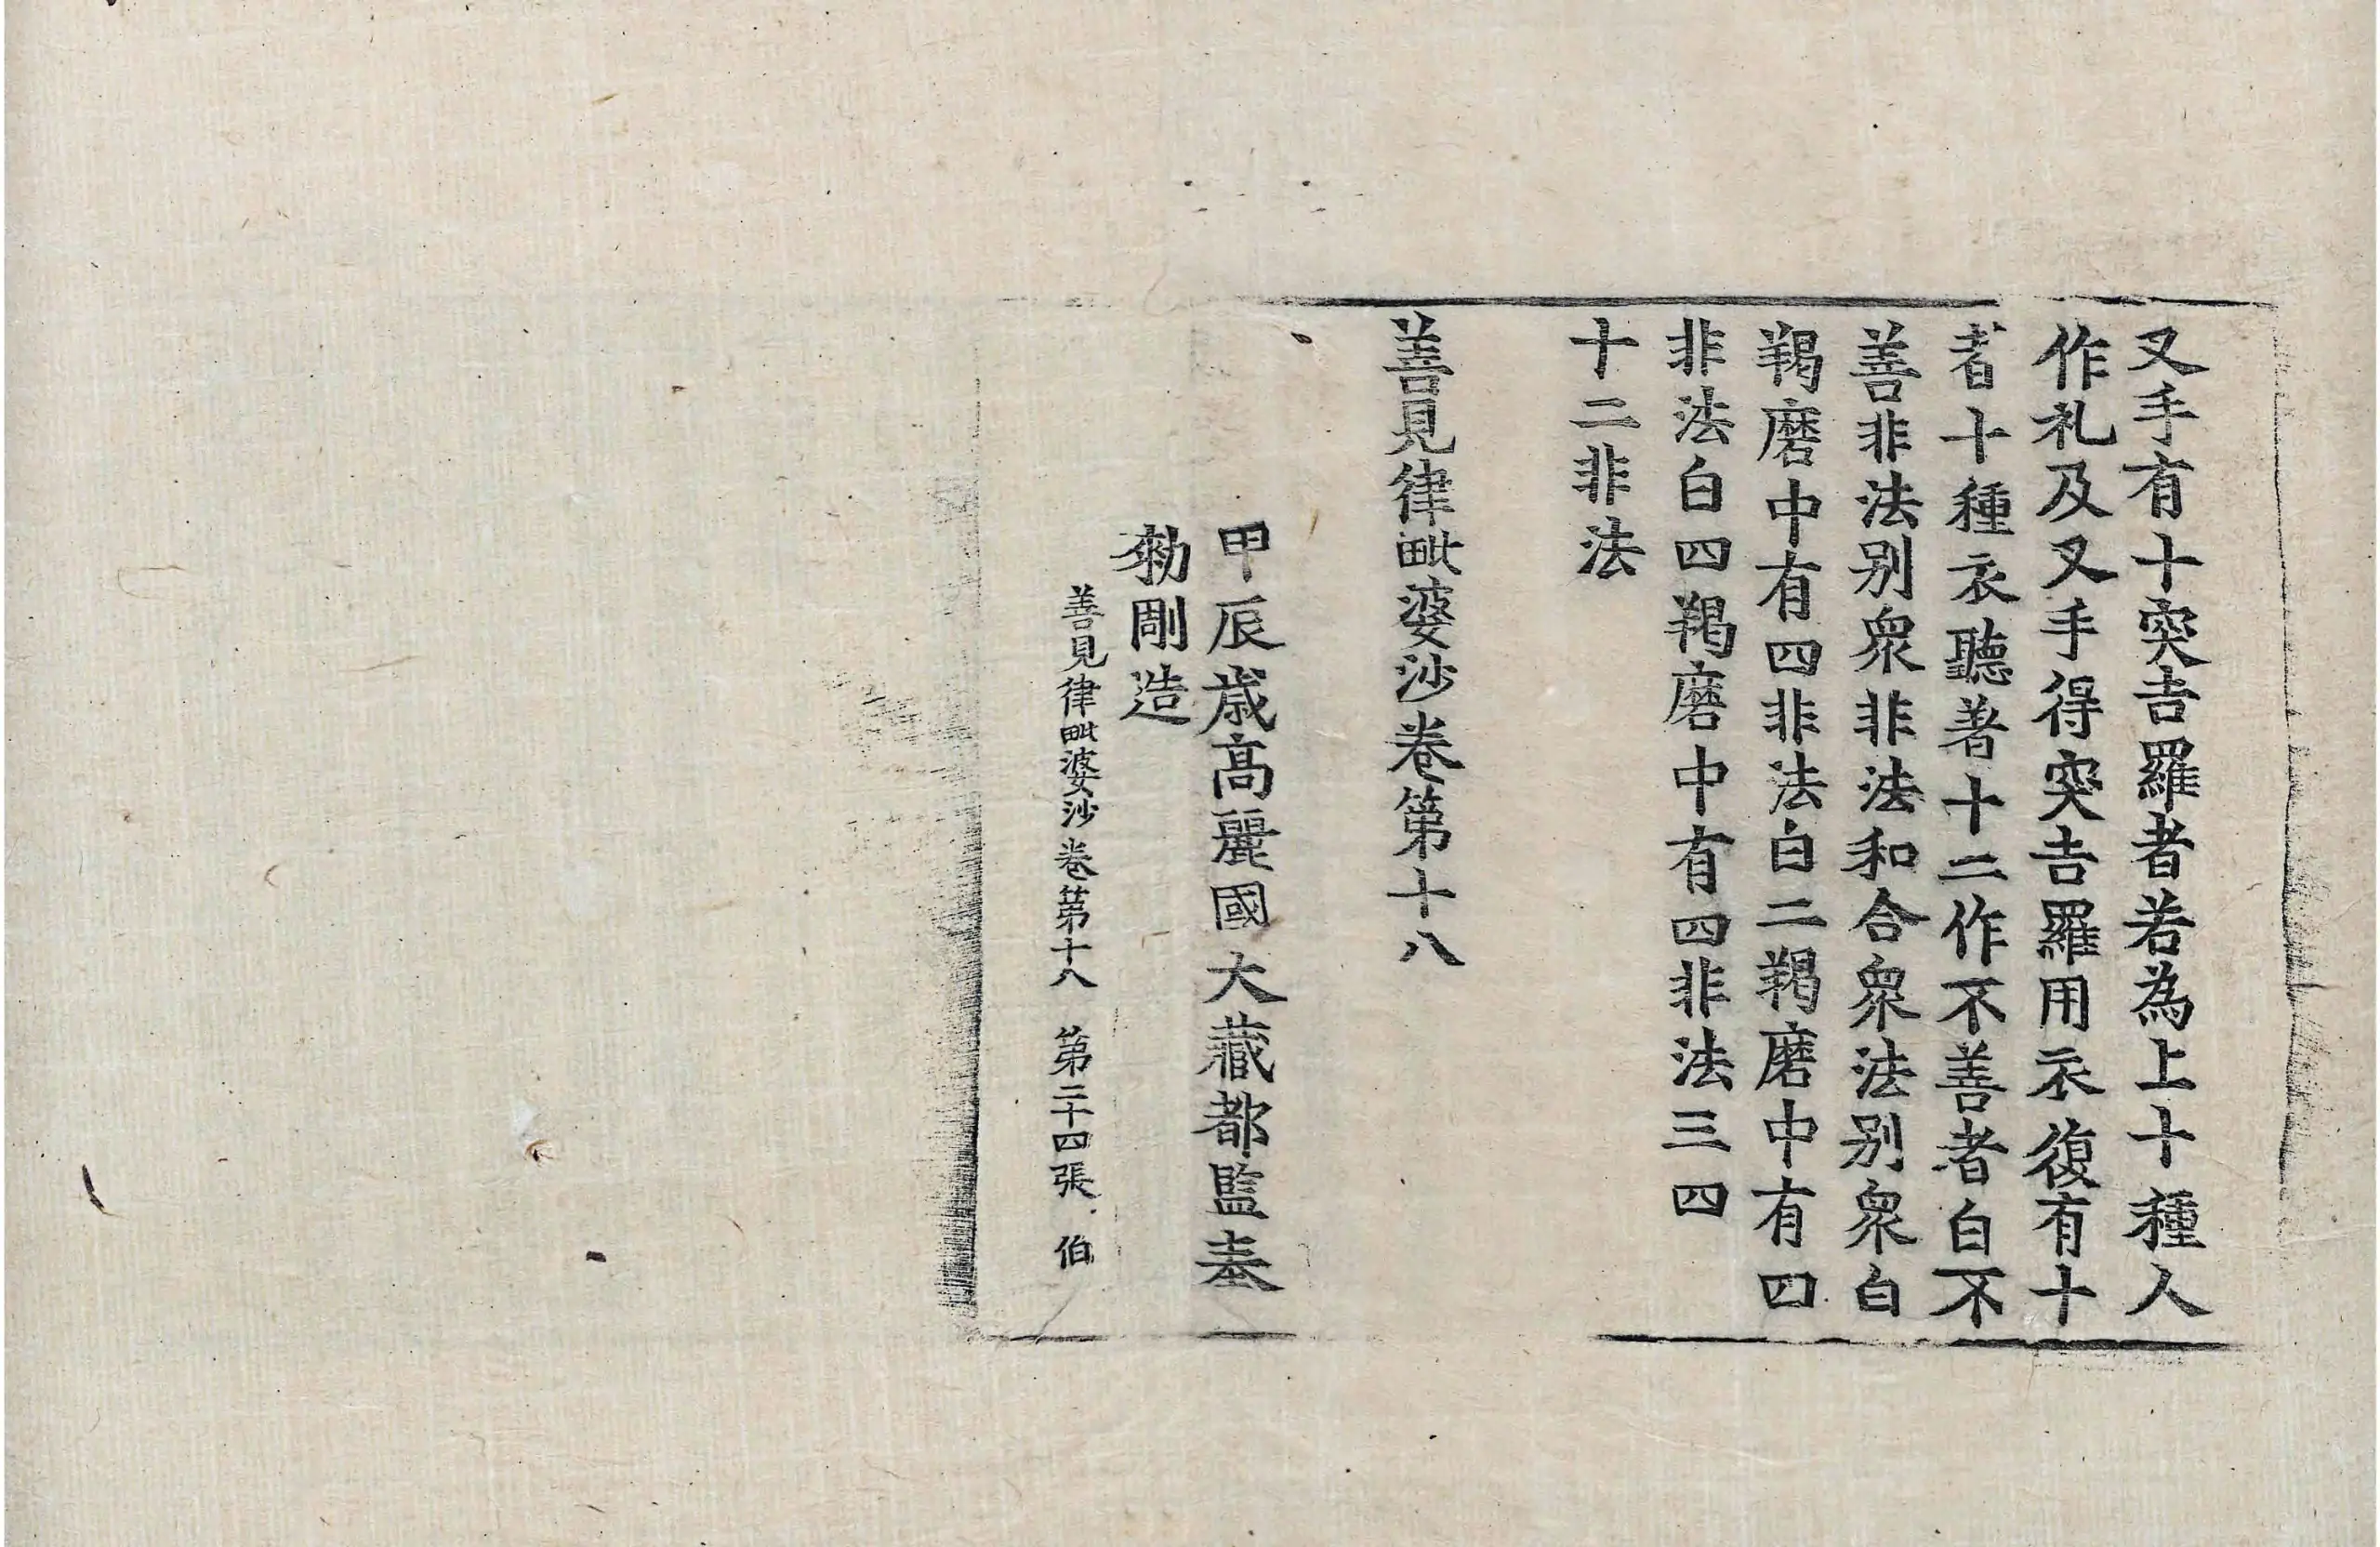 叉手有十突吉羅者若為上十種人
作礼及叉手得突吉羅用衣復有十
者十種衣聽著十二作不善者白不
善非法別衆非法和合衆法別衆白
羯磨中有四非法白二羯磨中有四
非法白四羯磨中有四非法三四
十二非法
善見律毗婆沙卷第十八
甲辰歲高麗國大藏都監奉
勑彫造
善見律毗婆沙卷第十八 第二十四張 伯